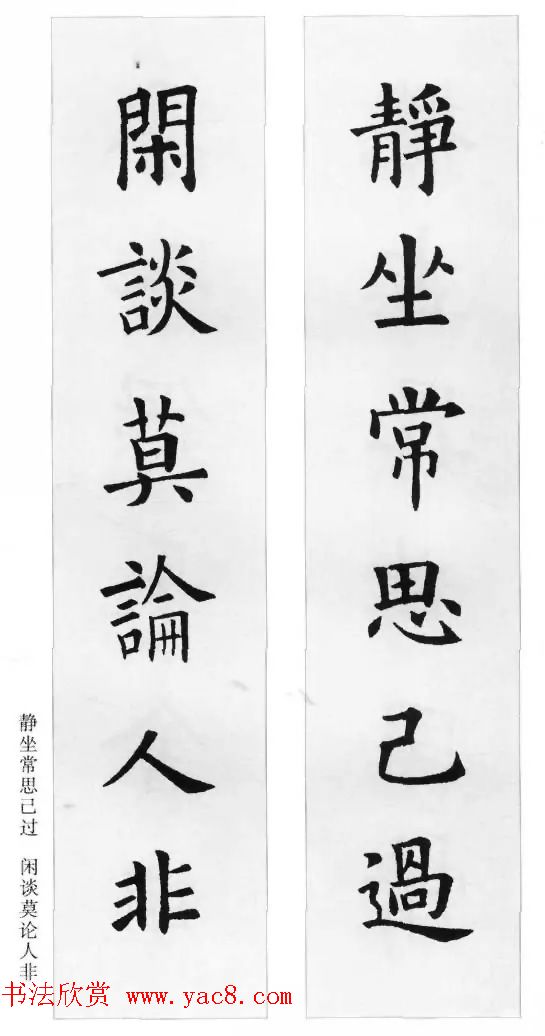 靜坐常思己過
閑談莫論人非
静坐常思己过 闲谈莫论人非
书法欣赏 www.yac8.com